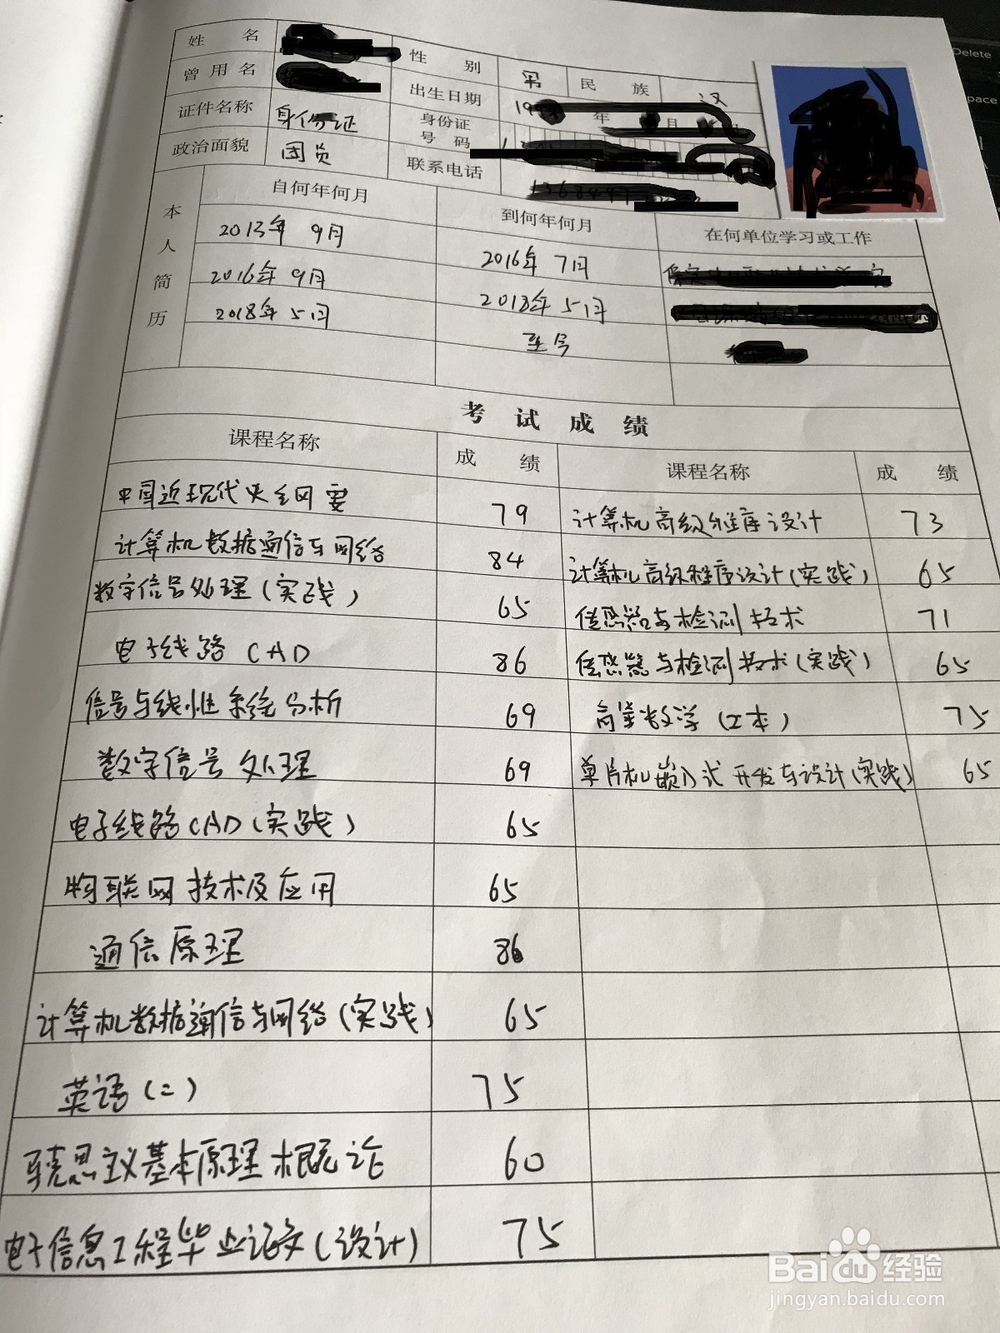 Delete
space
姓 名
性 别 男 民 族 汉
曾用名
出生日期 19 年 月
证件名称 身份证
身份证号码
政治面貌 团员
联系电话
本人简历
自何年何月 到何年何月 在何单位学习或工作
2013年 9月 2016年 7月
2016年 9月 2018年 5月
2018年 5月 至今
考试成绩
课程名称 成绩 课程名称 成绩
中国近现代史纲要 79 计算机高级程序设计 73
计算机数据通信与网络 84 计算机高级程序设计(实践) 65
数字信号处理(实践) 65 传感器与检测技术 71
电子线路 CAD 86 传感器与检测技术(实践) 65
信号与线性系统分析 69 高等数学(工本) 75
数字信号处理 69 单片机嵌入式开发与设计(实践) 65
电子线路CAD(实践) 65
物联网技术及应用 65
通信原理 86
计算机数据通信与网络(实践) 65
英语(二) 75
马克思主义基本原理概论 60
电子信息工程毕业论文(设计) 75
Baidu经验
jingyan.baidu.com